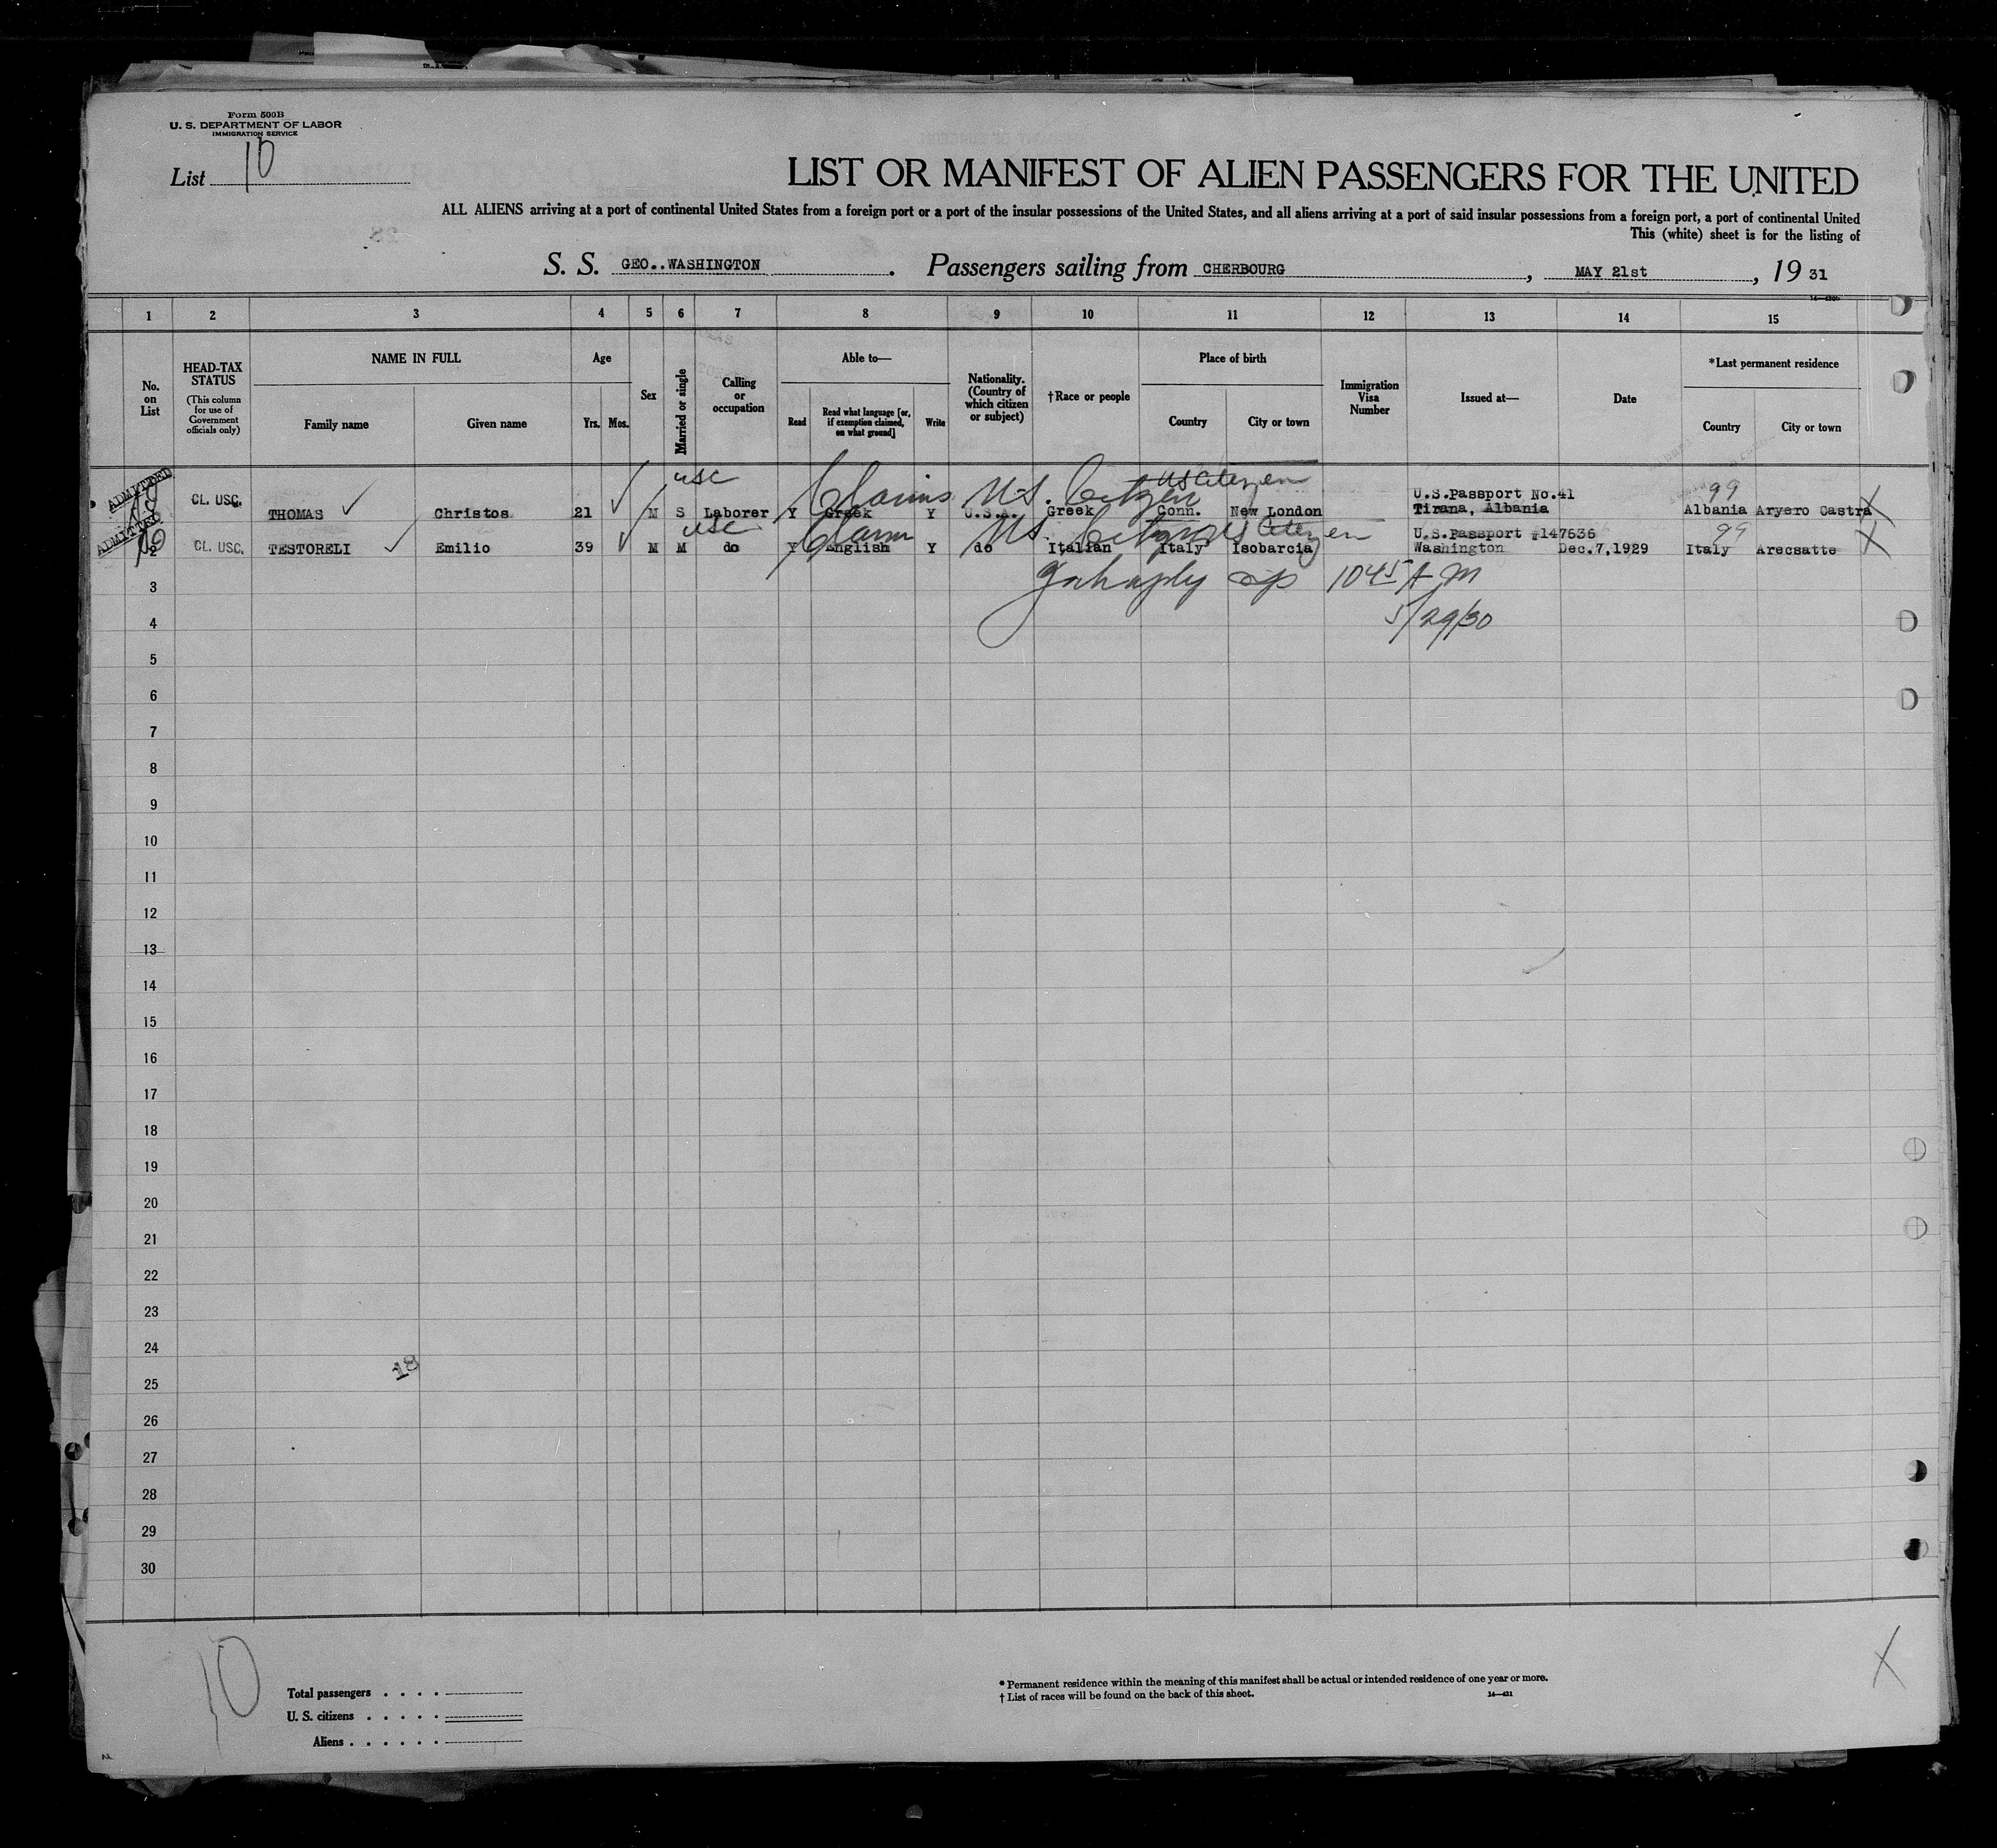 Form 500B
U. S. DEPARTMENT OF LABOR
IMMIGRATION SERVICE
List 10
LIST OR MANIFEST OF ALIEN PASSENGERS FOR THE UNITED
ALL ALIENS arriving at a port of continental United States from a foreign port or a port of the insular possessions of the United States, and all aliens arriving at a port of said insular possessions from a foreign port, a port of continental United
This (white) sheet is for the listing of
S. S. GEO..WASHINGTON. Passengers sailing from CHERBOURG, MAY 21st, 19 31
1 2 3 4 5 6 7 8 9 10 11 12 13 14 15
No. on List
HEAD-TAX STATUS
(This column for use of Government officials only)
NAME IN FULL
Family name Given name
Age
Yrs. Mos.
Sex
Married or single
Calling or occupation
Able to—
Read
Read what language [or, if exemption claimed, on what ground]
Write
Nationality. (Country of which citizen or subject)
†Race or people
Place of birth
Country City or town
Immigration Visa Number
Issued at—
Date
*Last permanent residence
Country City or town
usc Claims U.S. Citizen US Citizen 99
U.S.Passport No.41
ADMITTED CL. USC. THOMAS Christos 21 M S Laborer Y Greek Y U.S.A. Greek Conn. New London Tirana, Albania Albania Aryero Castra X
usc Claims U.S. Citizen US Citizen 99
U.S.Passport #147636
ADMITTED 2 CL. USC. TESTORELI Emilio 39 M M do Y English Y do Italian Italy Isobarcia Washington Dec.7,1929 Italy Arecsatte X
3 1045 AM
4 5/29/30
5
6
7
8
9
10
11
12
13
14
15
16
17
18
19
20
21
22
23
24
18
25
26
27
28
29
30
10
X
Total passengers
U. S. citizens
Aliens
* Permanent residence within the meaning of this manifest shall be actual or intended residence of one year or more.
† List of races will be found on the back of this sheet.
14—431